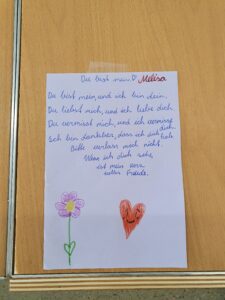 Du bist mein ♡ Melisa
Du bist mein, und ich bin dein.
Du liebst mich, und ich liebe dich.
Du vermisst mich, und ich vermisse dich.
Ich bin dankbar, dass ich dich habe
Bitte verlass mich nicht.
Wenn ich dich sehe,
ist mein
voller Freude.